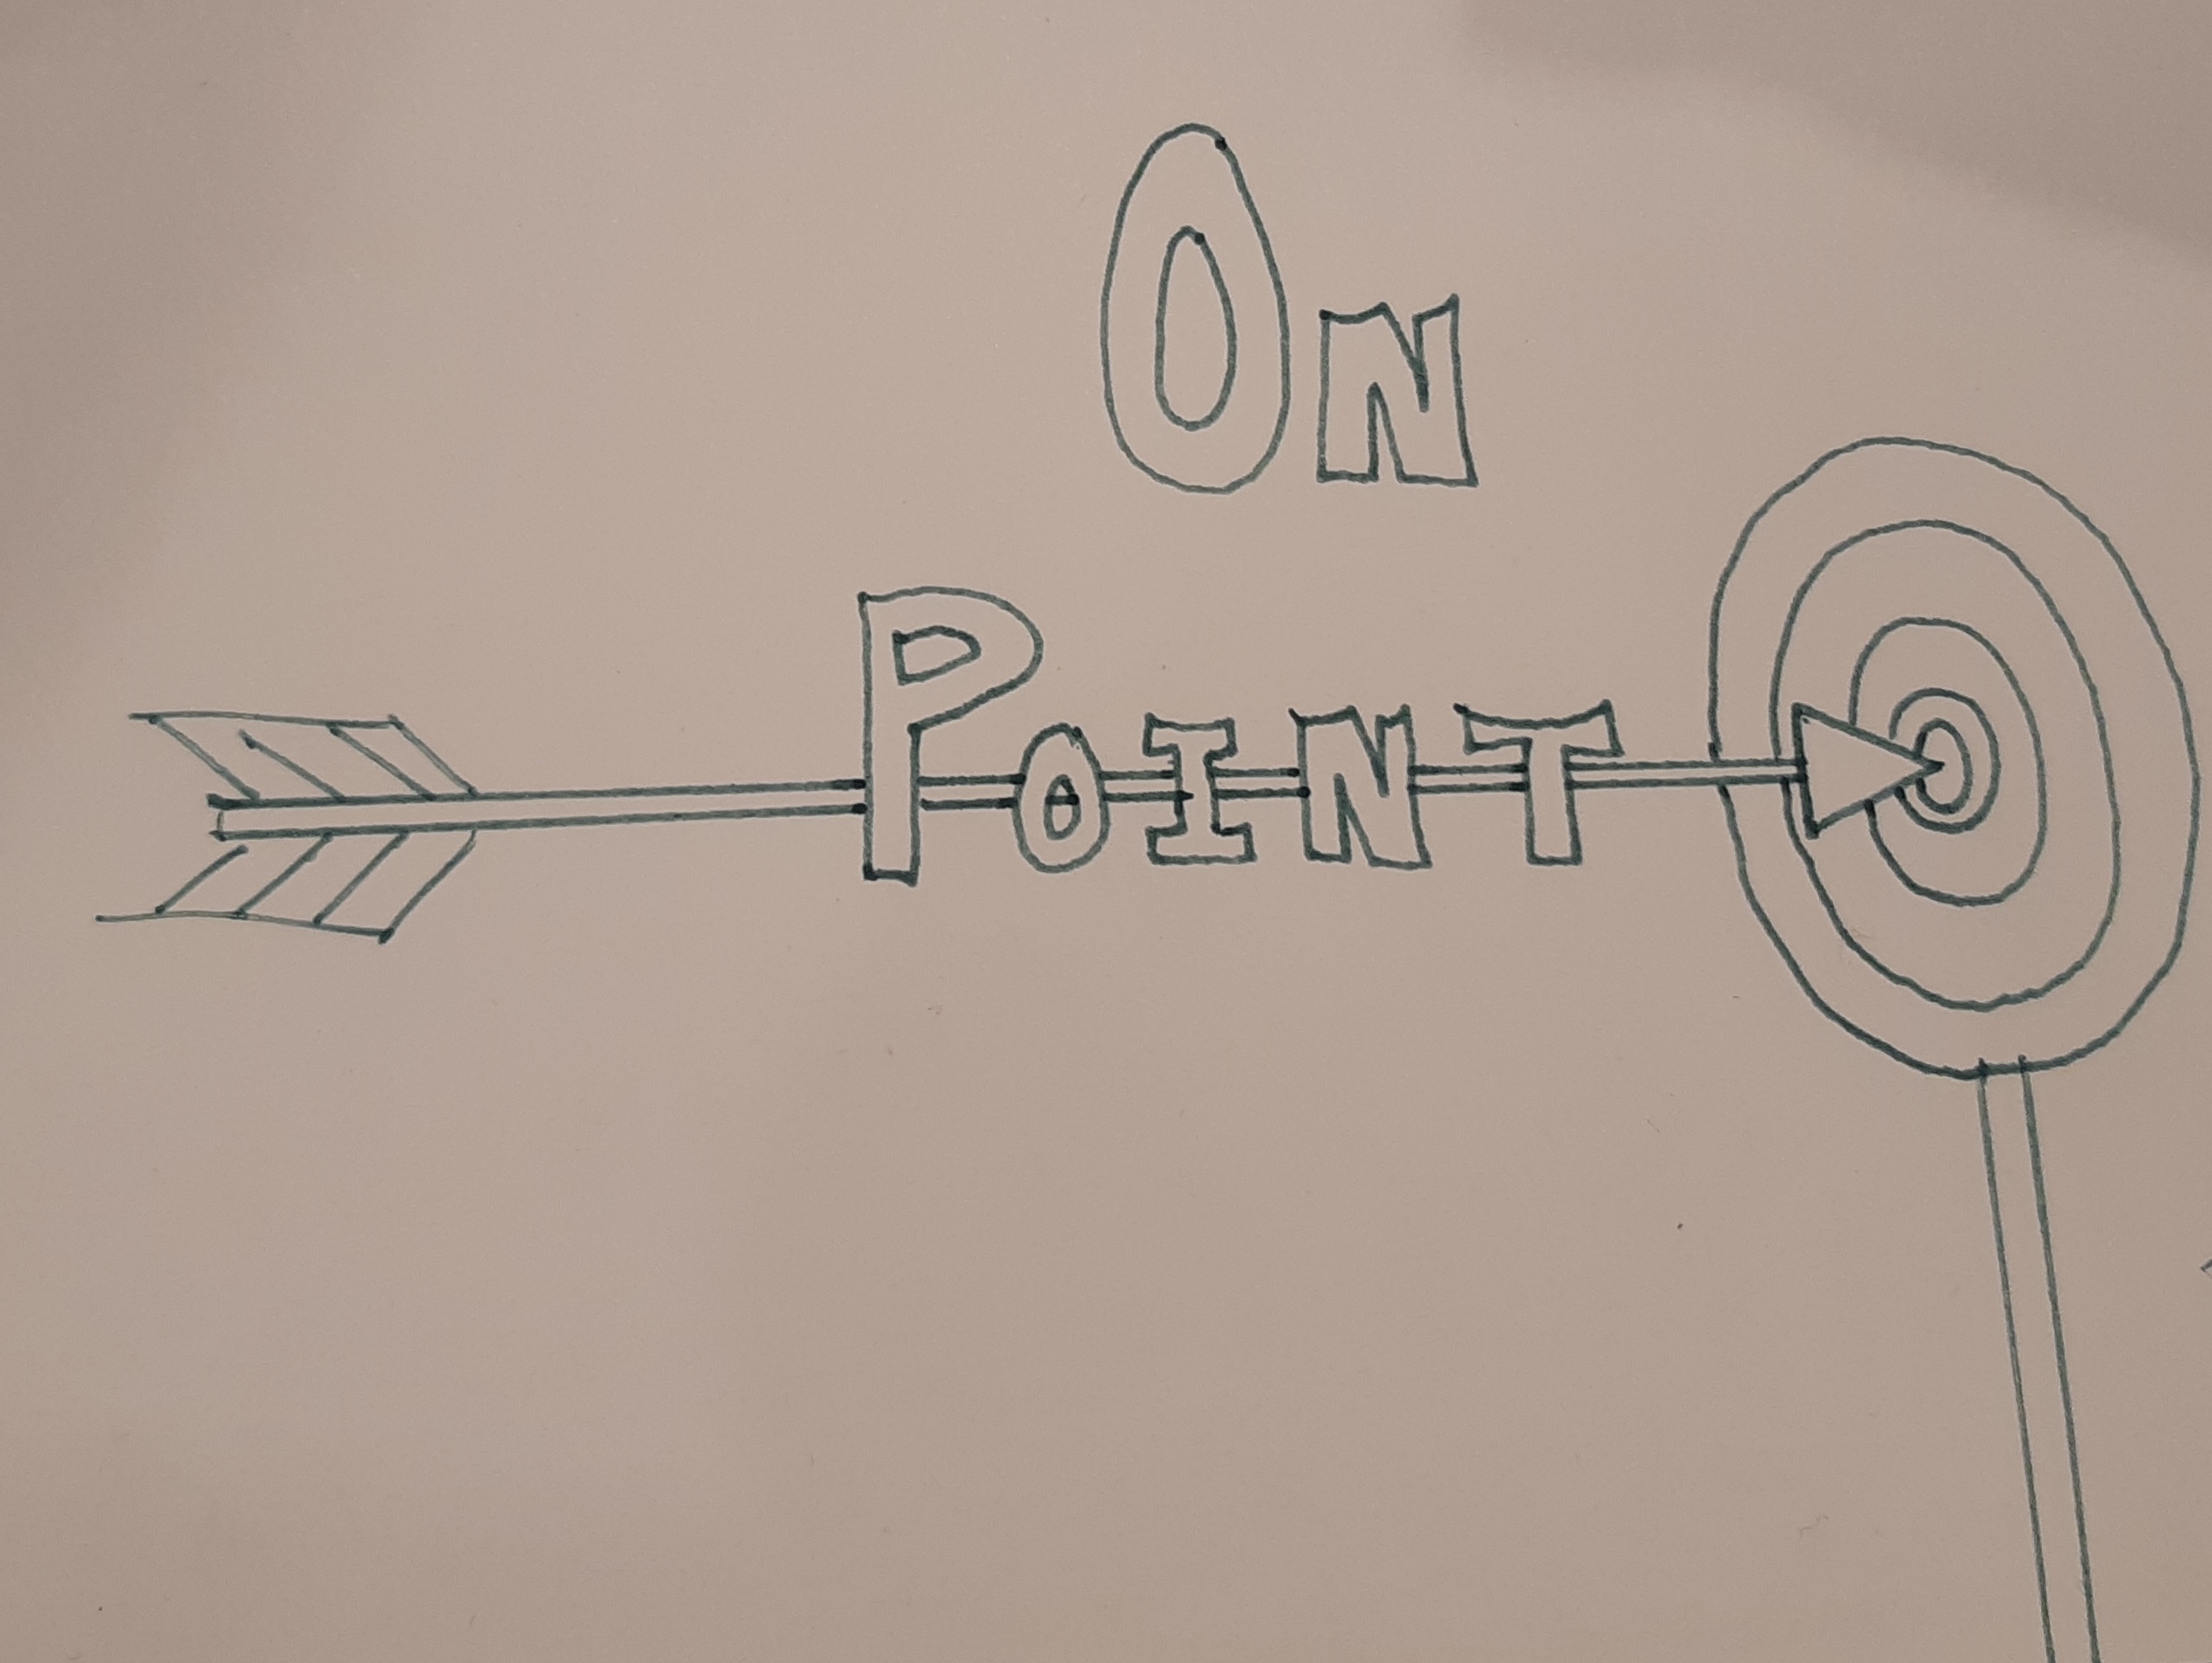 On
POINT